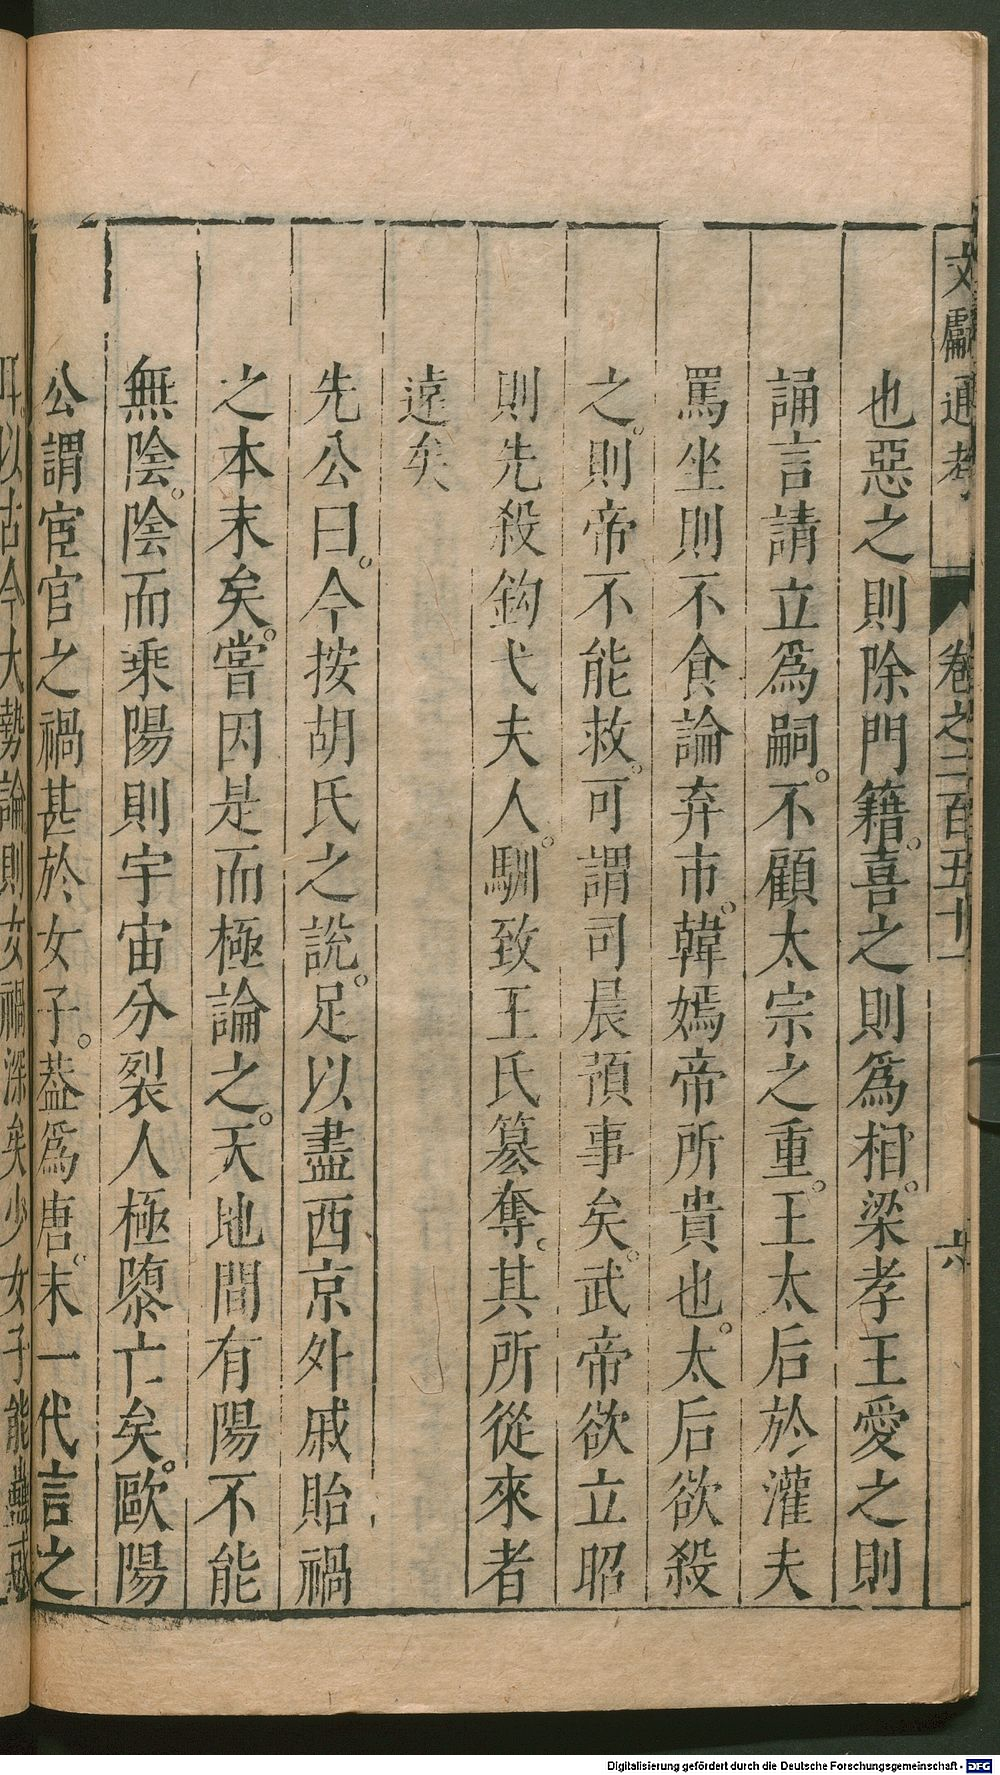 文獻通考 卷之二百五十一 六
也惡之則除門籍。喜之則爲相。梁孝王愛之則
誦言請立爲嗣。不顧太宗之重。王太后於灌夫
罵坐則不食論弃市。韓嫣帝所貴也。太后欲殺
之。則帝不能救。可謂司晨預事矣。武帝欲立昭
則先殺鈎弋夫人。馴致王氏簒奪。其所從來者
遠矣
先公曰。今按胡氏之說。足以盡西京外戚貽禍
之本末矣。嘗因是而極論之。天地間有陽不能
無陰。陰而乘陽則宇宙分裂人極隳亡矣。歐陽
公謂宦官之禍甚於女子。葢爲唐。末一代言之
耳。以古今大勢論則女禍深矣少女子能蠱惑
Digitalisierung gefördert durch die Deutsche Forschungsgemeinschaft - DFG